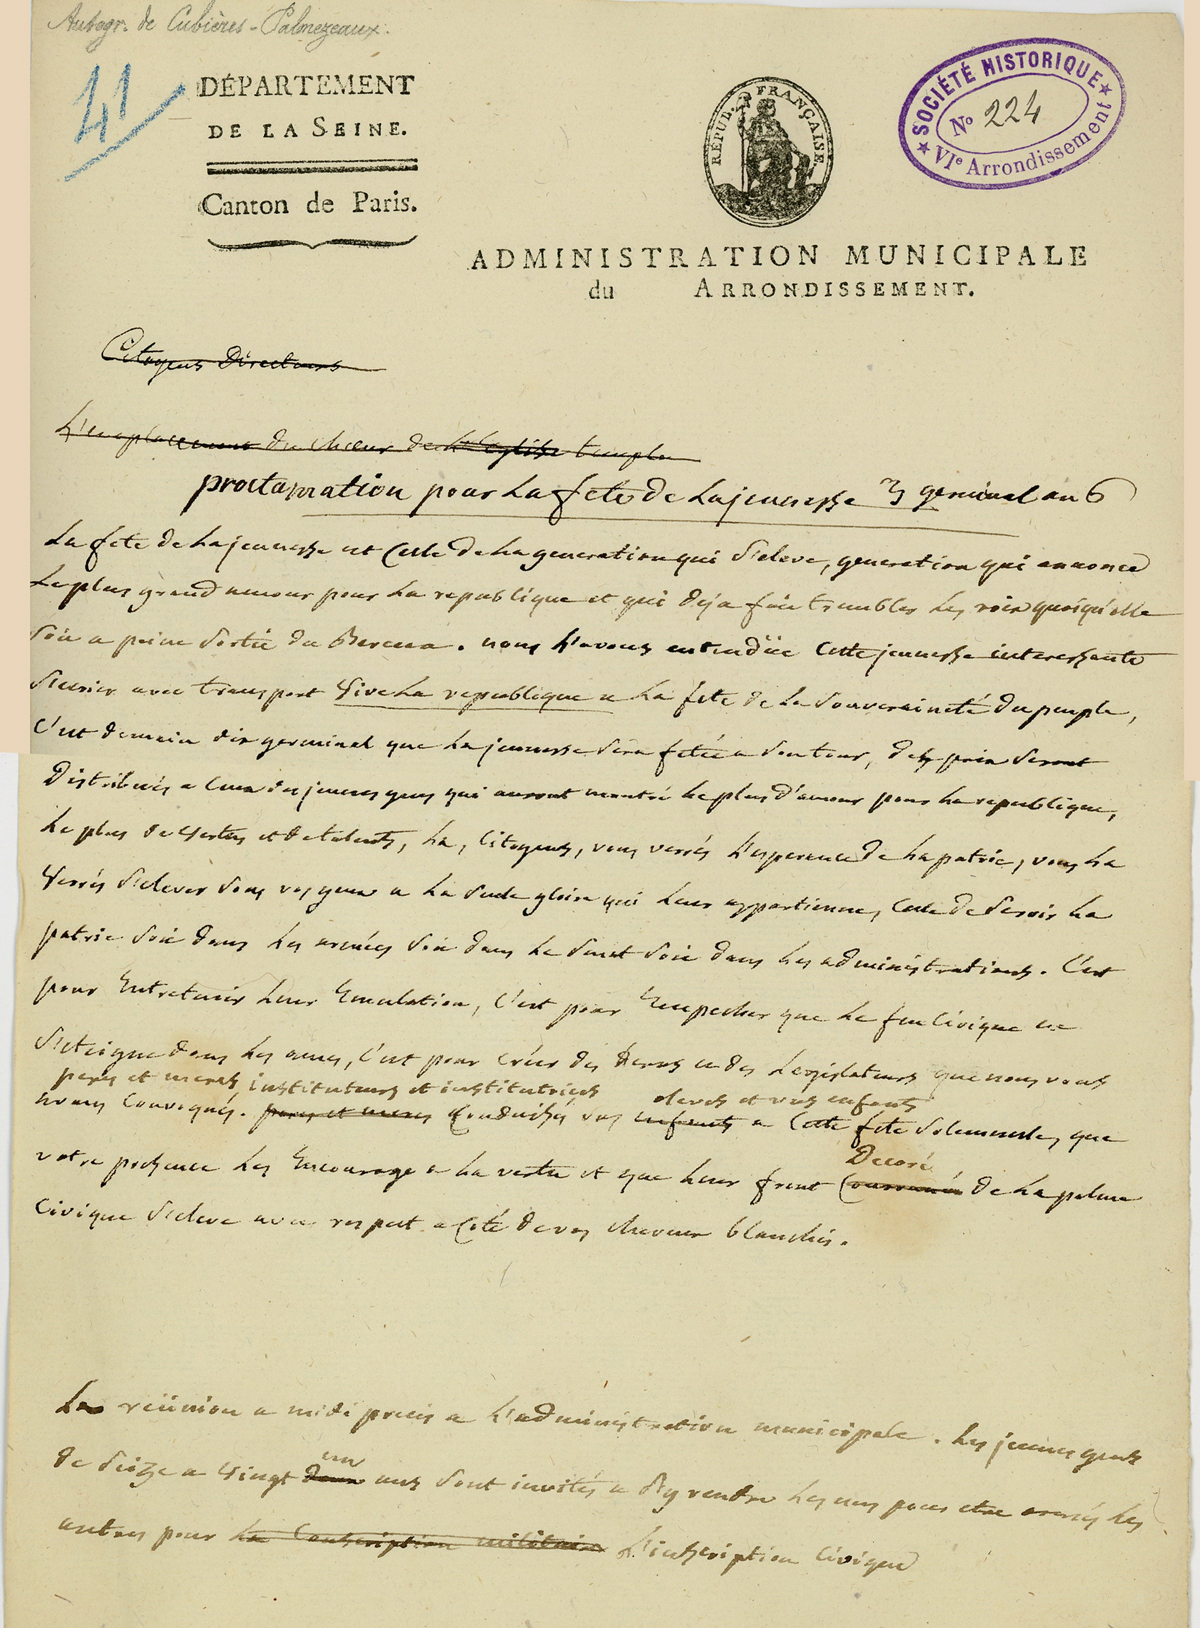 Autogr. de Cubières-Palmezeaux.
41
DÉPARTEMENT
DE LA SEINE.
Canton de Paris.
RÉPUB. FRANÇAISE.
SOCIÉTÉ HISTORIQUE
No 224
VIe Arrondissement
ADMINISTRATION MUNICIPALE
du ARRONDISSEMENT.
Citoyens Directeurs
L'emplacement du chœur de l'église temple
proclamation pour la fete de la jeunesse germinal an 6
La fete de la jeunesse est celle de la generation qui s'eleve, generation qui annonce
le plus grand amour pour la republique et qui deja fait trembler les rois quoiqu'elle
soit a peine sortie du Berceau. nous l'avons entendüe cette jeunesse interessante
s'ecrier avec transport Vive la republique a la fete de la Souveraineté du peuple,
C'est demain dix germinal que la jeunesse sera fetée a son tour, des prix seront
Distribués a ceux des jeunes gens qui auront montré le plus d'amour pour la republique,
le plus de vertus et de talents, la, Citoyens, vous verrés l'esperance de la patrie, vous la
verrés s'elever sous vos yeux a la seule gloire qui leur appartienne, celle de servir la
patrie soit dans les armées soit dans le senat soit dans les administrations. C'est
pour Entretenir leur Emulation, C'est pour Empecher que le feu Civique ne
s'eteigne dans les ames, C'est pour créer des heros et des Legislateurs que nous vous
peres et meres instituteurs et institutrices eleves et vos enfants
avons Convoqués. peres et meres Conduisés vos enfants a Cette fete solemnelle, que
Decoré
votre presence les Encourage a la vertu et que leur front Couronné de la palme
Civique s'eleve avec respect a Coté de vos cheveux blanchis.
La reünion a midi precis a l'administration municipale. les jeunes gens
un
de seize a vingt deux ans sont invités a s'y rendre les uns pour etre armés les
autres pour la Conscription militaire L'inscription Civique